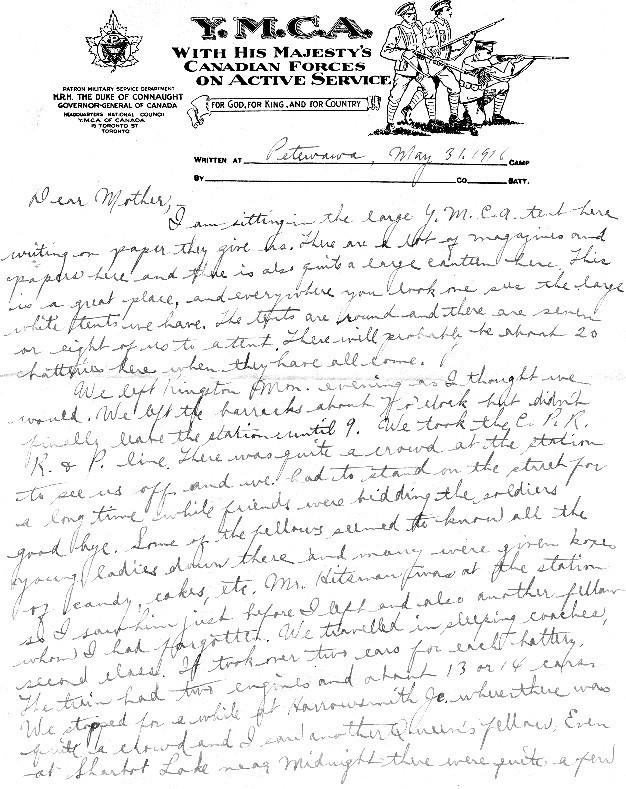 Y.M.C.A.
WITH HIS MAJESTY'S
CANADIAN FORCES
ON ACTIVE SERVICE
FOR GOD, FOR KING, AND FOR COUNTRY
PATRON MILITARY SERVICE DEPARTMENT
H.R.H. THE DUKE OF CONNAUGHT
GOVERNOR-GENERAL OF CANADA
HEADQUARTERS NATIONAL COUNCIL
Y.M.C.A. OF CANADA
15 TORONTO ST
TORONTO
WRITTEN AT Petewawa, May 31. 1916 CAMP
BY CO. BATT.
Dear Mother,-
I am sitting in the large Y.M.C.A. tent here
writing on paper they give us. There are a lot of magazines and
papers here and there is also quite a large canteen here. This
is a great place, and everywhere you look one sees the large
white tents we have. The tents are round and there are seven
or eight of us to a tent. There will probably be about 20
batteries here when they have all come.
We left Kingston Mon. evening as I thought we
would. We left the barracks about 7 o'clock but didn't
finally leave the station until 9. We took the C.P.R.
K. & P. line. There was quite a crowd at the station
to see us off and we had to stand on the street for
a long time while friends were bidding the soldiers
good bye. Some of the fellows seemed to know all the
young ladies down there and many were given boxes
of candy, cakes, etc. Mr. Hitsman was at the station
so I saw him just before I left and also another fellow
whom I had forgotten. We travelled in sleeping coaches,
second class. It took over two cars for each battery.
The train had two engines and about 13 or 14 cars.
We stopped for a while at Harrowsmith Jc. where there was
quite a crowd and I saw another Queen's fellow. Even
at Sharbot Lake near Midnight there were quite a few